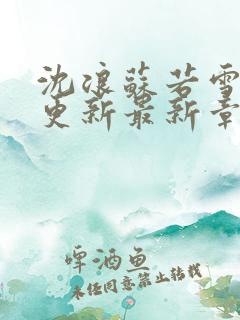 沈浪蘇若雪
更新最新章
啤酒鱼
未经同意禁止转载